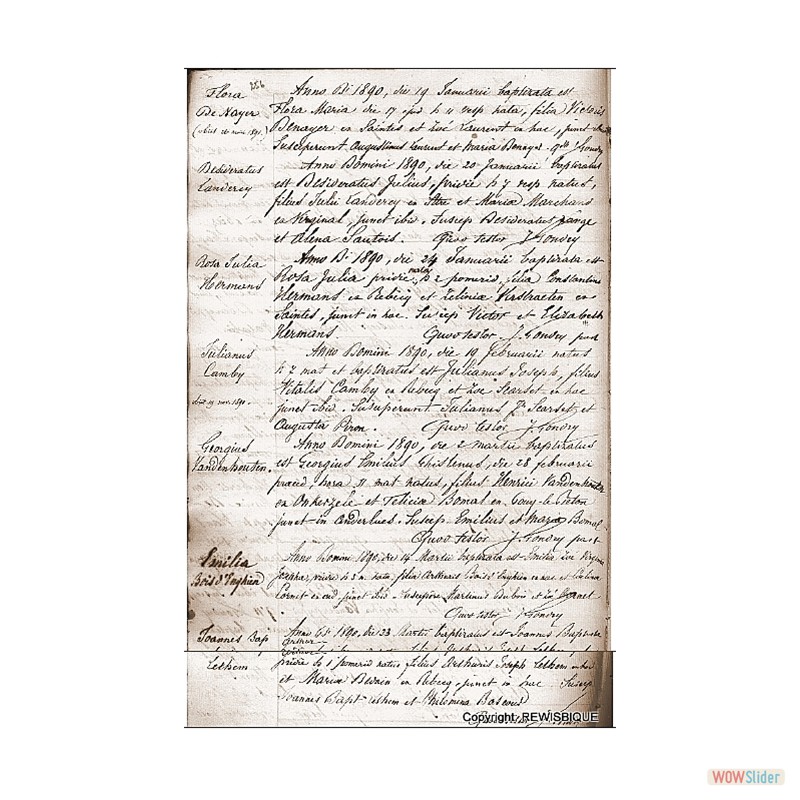 256
Flora
De Nayer
(obiit 26 nov. 1891.)
Anno Di 1890, die 19 Januarii baptizata est
Flora Maria die 17 h 11 vesp nata, filia Victoris
Denayer ex Saintes et Zoe Laurent ex hac, junct
Susceperunt Augustinus Laurent et Maria Denayer. J Gondry
Desideratus
Landercy
Anno Domini 1890, die 20 Januarii baptizatus
est Desideratus Julius, pridie h 7 vesp natus,
filius Julii Landercy ex et Maria Marchand
ex Virginal, junct ibid. Suscep Desideratus
et Elena Sautois. Quod testor J. Gondry
Rosa Julia
Hermans
Anno Di 1890, die 24 Januarii baptizata est
Rosa Julia pridie nata h 2 pomerid, filia Constantini
Hermans ex Rebecq et Zelinia Verstraeten ex
Saintes, junct in hac. Suscep Victor et Elizabeth
Hermans. Quod testor J. Gondry past
Julianus
Camby
obiit 19 nov. 1890.
Anno Domini 1890, die 19 februarii natus
h 7 mat et baptizatus est Julianus Joseph, filius
Vitalis Camby ex Rebecq et Zoe Scarset ex hac
junct ibid. Susceperunt Julianus Scarset et
Augusta Piron. Quod testor J. Gondry
Georgius
Vandenhouten.
Anno Domini 1890, die 2 martii baptizatus
est Georgius Emilius Ghislenus, die 28 februarii
praeced, hora 11 mat natus, filius Henrici Vandenhouten
ex Onkerzele et Felicia Bomal ex Gouy-le-Pieton
junct in Anderlues. Suscep Emilius et Maria Bomal
Quod testor J. Gondry past
Emilia
Bois d'Enghien
Anno Domini 1890, die 14 Martii baptizata est Emilia Zoe Virginia
Josepha, pridie h 5 nata, filia Arthuris Bois d'Enghien ex hac et
Cornet ex ead junct ibid. Martinus Dubois et
Quod testor J Gondry
Joannes Bap
Lethem
Anno Di 1890, die 23 Martii baptizatus est Joannes Baptista
Arthur
pridie h 1 pomerid natus, filius Arthuris Joseph Lethem
et Maria ex Rebecq, junct in hac. Suscep
Joannes Bapt Lethem et Philomena
Quod testor J.
Copyright REWISBIQUE
WOWSlider